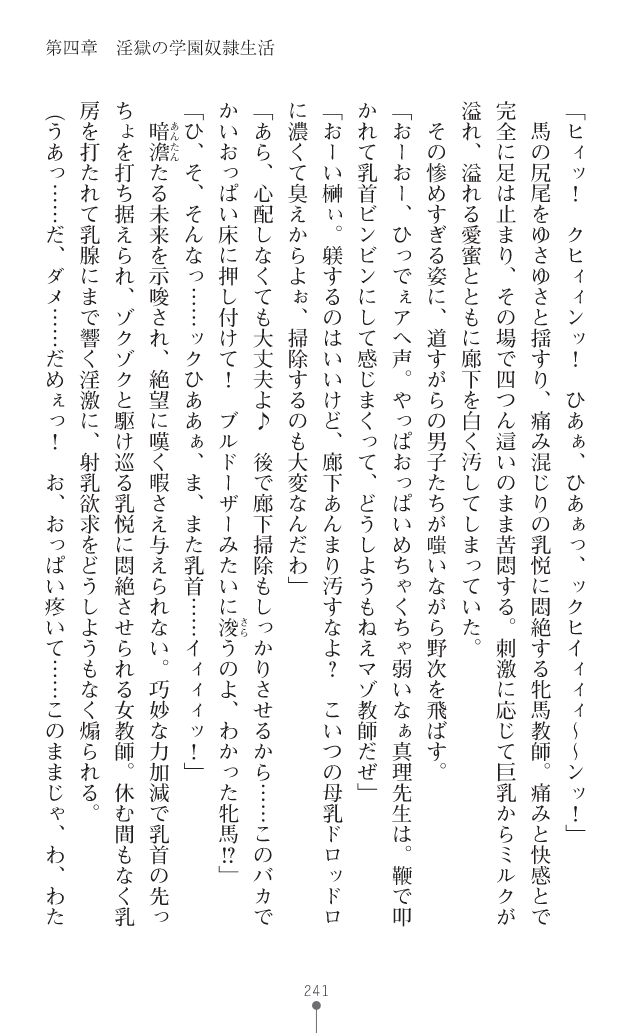 第四章　淫獄の学園奴隷生活
「ヒィッ！　クヒィィンッ！　ひあぁ、ひあぁっ、ックヒイィィィ～～ンッ！」
　馬の尻尾をゆさゆさと揺すり、痛み混じりの乳悦に悶絶する牝馬教師。痛みと快感とで
完全に足は止まり、その場で四つん這いのまま苦悶する。刺激に応じて巨乳からミルクが
溢れ、溢れる愛蜜とともに廊下を白く汚してしまっていた。
　その惨めすぎる姿に、道すがらの男子たちが嗤いながら野次を飛ばす。
「おーおー、ひっでぇアヘ声。やっぱおっぱいめちゃくちゃ弱いなぁ真理先生は。鞭で叩
かれて乳首ビンビンにして感じまくって、どうしようもねえマゾ教師だぜ」
「おーい榊ぃ。躾するのはいいけど、廊下あんまり汚すなよ？　こいつの母乳ドロッドロ
に濃くて臭えからよぉ、掃除するのも大変なんだわ」
「あら、心配しなくても大丈夫よ♪　後で廊下掃除もしっかりさせるから……このバカで
かいおっぱい床に押し付けて！　ブルドーザーみたいに浚うのよ、わかった牝馬!?」
「ひ、そ、そんなっ……ックひああぁ、ま、また乳首……イィィィッ！」
　暗澹たる未来を示唆され、絶望に嘆く暇さえ与えられない。巧妙な力加減で乳首の先っ
ちょを打ち据えられ、ゾクゾクと駆け巡る乳悦に悶絶させられる女教師。休む間もなく乳
房を打たれて乳腺にまで響く淫激に、射乳欲求をどうしようもなく煽られる。
（うあっ……だ、ダメ……だめぇっ！　お、おっぱい疼いて……このままじゃ、わ、わた
241